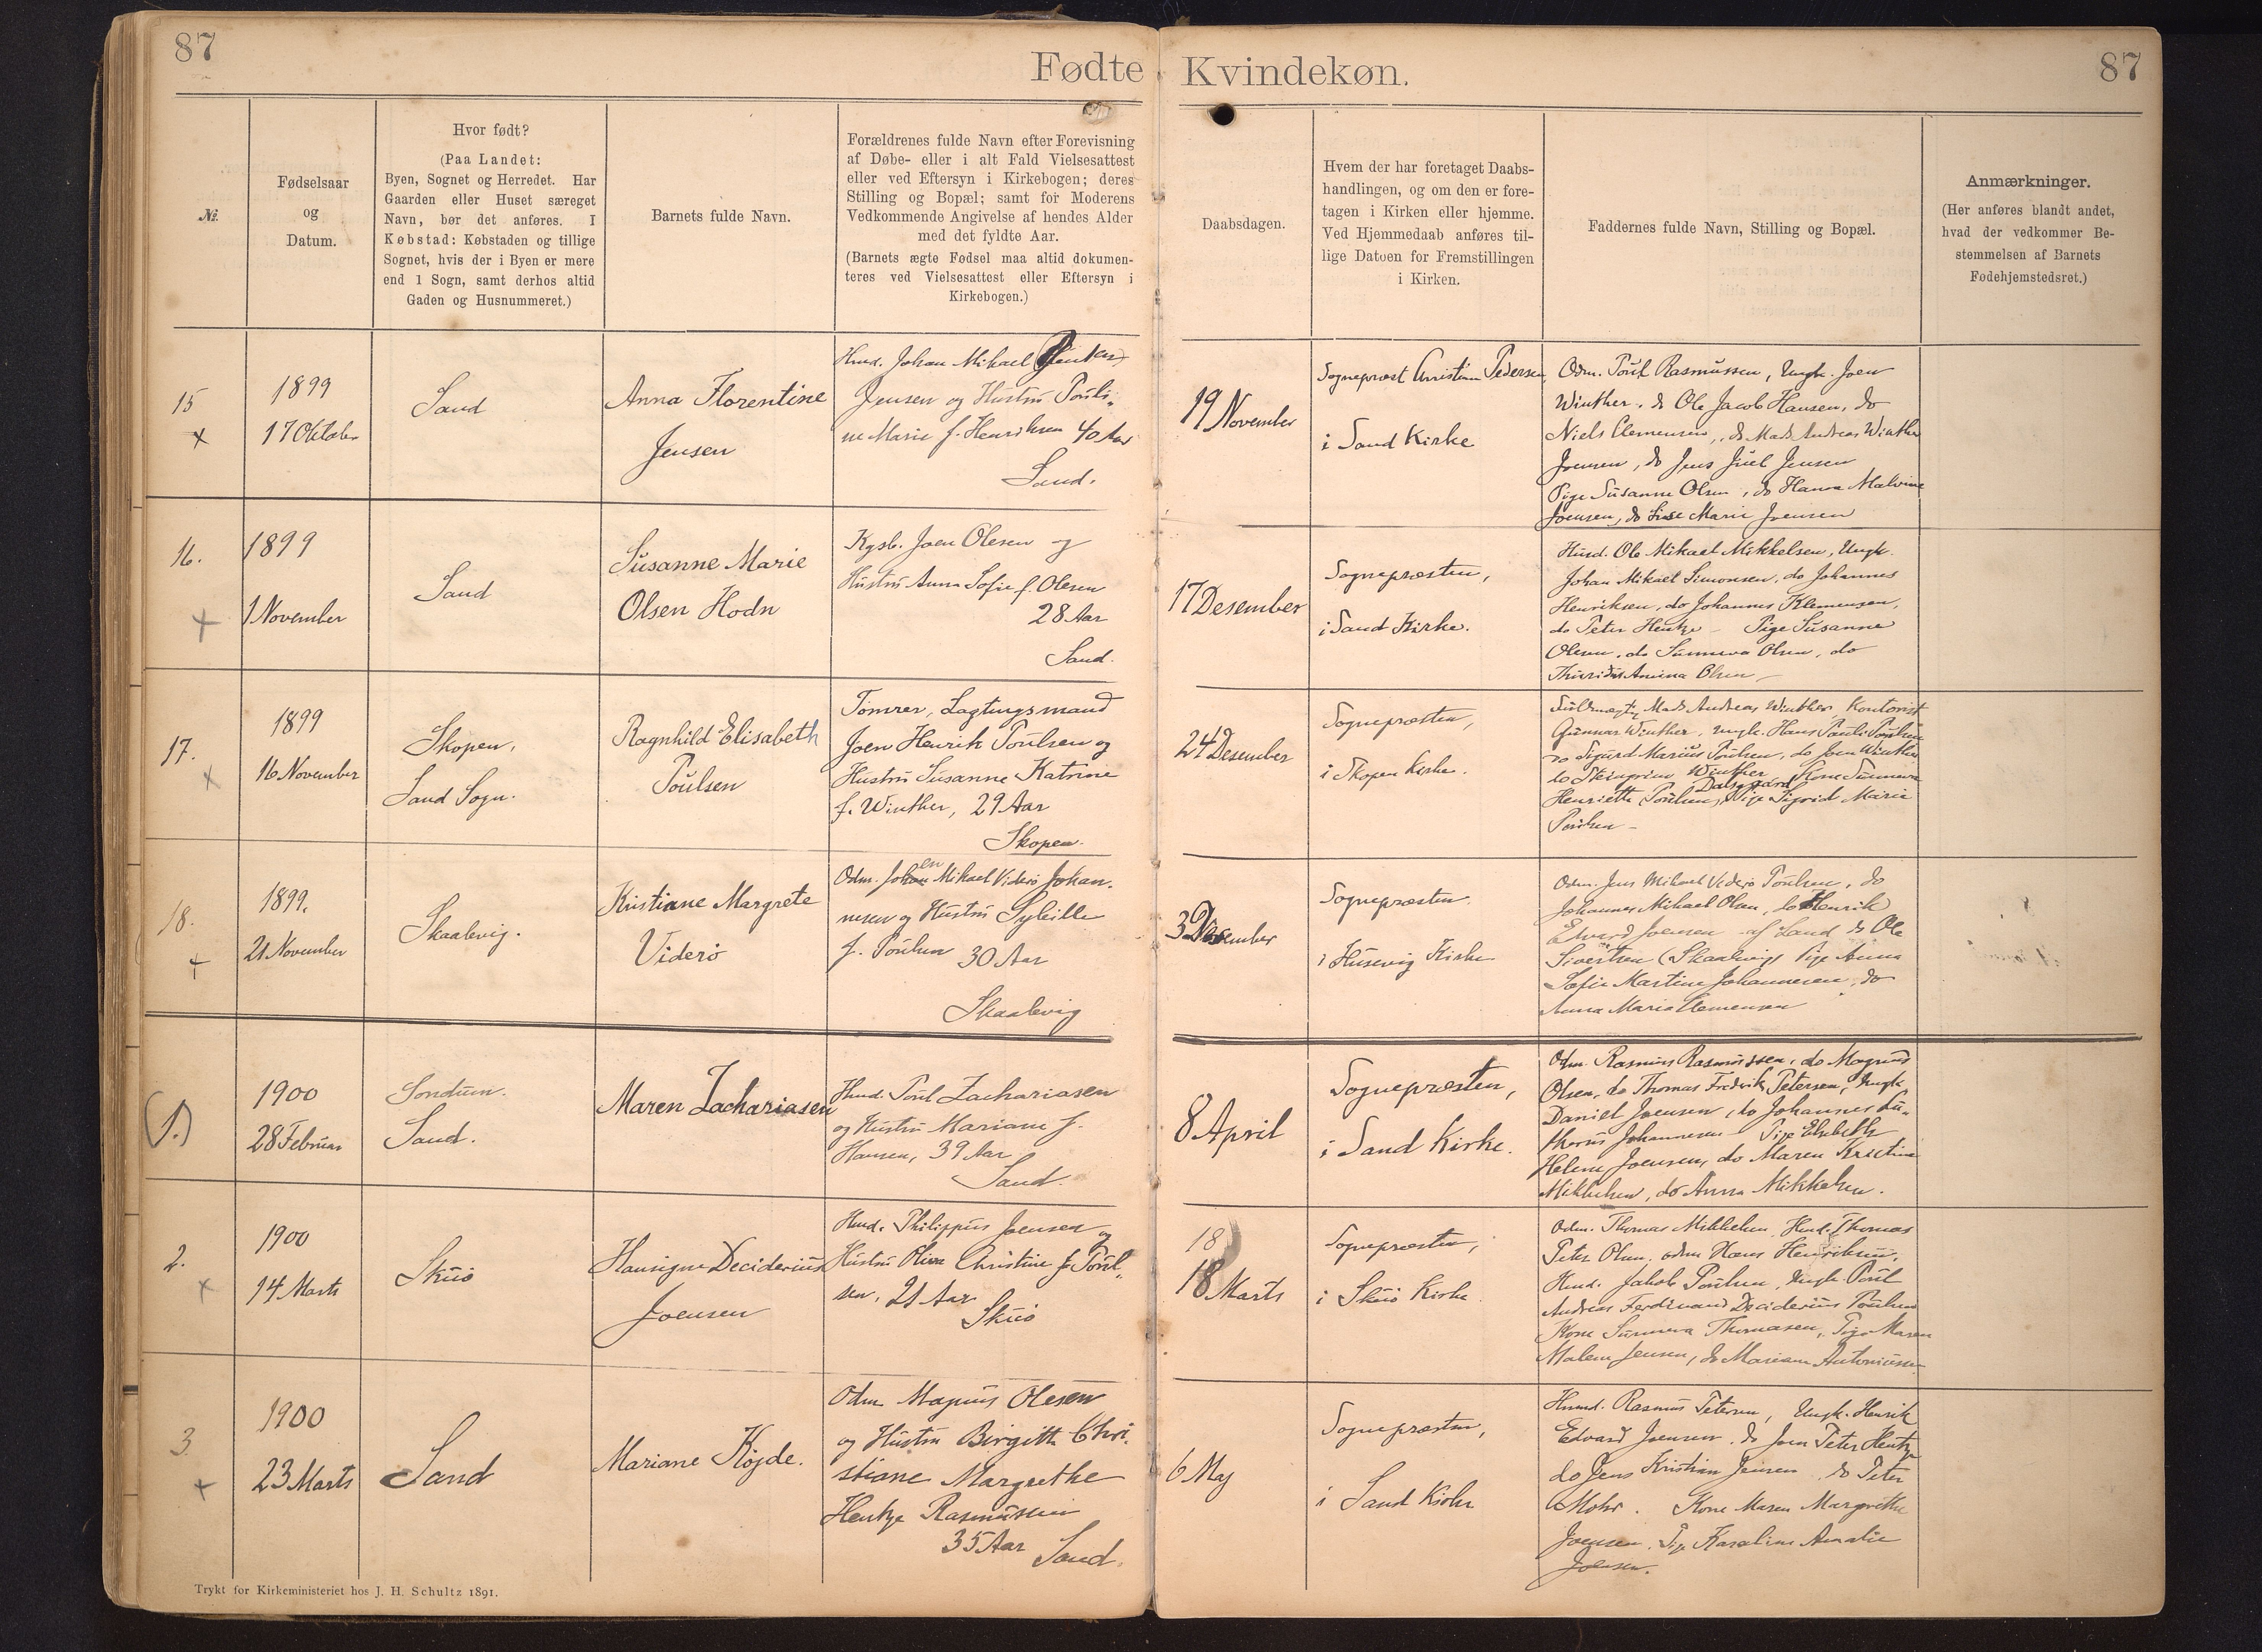 87
Fødte
Kvindekøn.
87
№.
Fødselsaar
og
Datum.
Hvor født?
(Paa Landet:
Byen, Sognet og Herredet. Har
Gaarden eller Huset særeget
Navn, bør det anføres. I
Købstad: Købstaden og tillige
Sognet, hvis der i Byen er mere
end 1 Sogn, samt derhos altid
Gaden og Husnummeret.)
Barnets fulde Navn.
Forældrenes fulde Navn efter Forevisning
af Døbe- eller i alt Fald Vielsesattest
eller ved Eftersyn i Kirkebogen; deres
Stilling og Bopæl; samt for Moderens
Vedkommende Angivelse af hendes Alder
med det fyldte Aar.
(Barnets ægte Fødsel maa altid dokumen-
teres ved Vielsesattest eller Eftersyn i
Kirkebogen.)
Daabsdagen.
Hvem der har foretaget Daabs-
handlingen, og om den er fore-
tagen i Kirken eller hjemme.
Ved Hjemmedaab anføres til-
lige Datoen for Fremstillingen
i Kirken.
Faddernes fulde Navn, Stilling og Bopæl.
Anmærkninger.
(Her anføres blandt andet,
hvad der vedkommer Be-
stemmelsen af Barnets
Fødehjemstedsret.)
15
×
1899
17 Oktober
Sand
Anna Florentine
Jensen
Hmd. Johan Mikael
Jensen og Hustru Pouli-
ne Marie f. Henriksen 40 Aar
Sand.
19 November
Sognepræst Christian Pedersen,
i Sand Kirke
Odm. Poul Rasmussen, Ungk. Joen
Winther, do Ole Jacob Hansen, do
Niels Clemensen, do Mads Andreas Winther
Joensen, do Jens Juel Jensen
Pige Susanne Olsen, do Hanna Malvine
Joensen, do Lise Marie Joensen
16.
+
1899
1 November
Sand
Susanne Marie
Olsen Hodn
Kgsb. Joen Olesen og
Hustru Anna Sofie f. Olesen
28 Aar
Sand.
17 Desember
Sognepræsten,
i Sand Kirke.
Husd. Ole Mikael Mikkelsen, Ungk.
Johan Mikael Simonsen, do Johannes
Henriksen, do Johannes Klemensen,
do Peter Hentze – Pige Susanne
Olesen, do Sunneva Olsen, do
Olsen –
17.
×
1899
16 November
Skopen,
Sand Sogn.
Ragnhild Elisabeth
Poulsen
Tømrer, Lagtingsmand
Joen Henrik Poulsen og
Hustru Susanne Katrine
f. Winther, 29 Aar
Skopen.
24 Desember
Sognepræsten,
i Skopen Kirke.
Fuldmægtig Mads Andreas Winther Kontorist
Gunnar Winther, Ungk. Hans Pauli Poulsen
do Sigurd Marius Poulsen, do Joen Winther
do Steingrim Winther, Kone Sunneva
Dalsgaard
Henriette Poulsen, Pige Sigrid Marie
Poulsen –
18.
+
1899.
21 November
Skaalevig.
Kristiane Margrete
Viderø
en
Odm. Johan Mikael Viderø Johan-
nesen og Hustru Sybille
f. Poulsen 30 Aar
Skaalevig
3 Desember
Sognepræsten.
i Husevig Kirke
Odm. Jens Mikael Viderø Poulsen, do
Johannes Mikael Olsen, do Henrik
Edvard Joensen af Sand do Ole
Sivertsen (Skaalevig) Pige Anna
Sofie Martine Johannesen, do
Anna Marie Clemensen
(1.)
1900
28 Februar
Sondum.
Sand.
Maren Zachariasen
Hmd. Poul Zachariasen
og Hustru Mariane f.
Hansen, 39 Aar
Sand.
8 April
Sognepræsten,
i Sand Kirke.
Odm. Rasmus Rasmussen, do Magnus
Olsen, do Thomas Fredrik Petersen, Ungk.
Daniel Joensen, do Johannes Lu-
therus Johannesen – Pige Elsebeth
Helene Joensen, do Maren Kristine
Mikkelsen, do Anna Mikkelsen.
2.
×
1900
14 Marts
Skuø
Hansigne Deciderius
Joensen
Hmd. Philippus Joensen og
Hustru Oliva Christine f. Poul-
sen, 21 Aar
Skuø
18
18 Marts
Sognepræsten,
i Skuø Kirke.
Odm. Thomas Mikkelsen, Hmd. Thomas
Peter Olsen, odm Hans Henriksen,
Hmd. Jakob Poulsen, Ungk. Poul
Andreas Ferdinand Deciderius Poulsen
Kone Sunneva Thomasen, Pige Maren
Malene Jensen, do Mariane Antoniussen
3
+
1900
23 Marts
Sand
Mariane Kojde.
Odm Magnus Olesen
og Hustru Birgitte Chri-
stiane Margrethe
Hentze Rasmussen
35 Aar Sand.
6 Maj
Sognepræsten,
i Sand Kirke
Husmd. Rasmus Petersen, Ungk. Henrik
Edvard Joensen, do Joen Peter Hentze
do Jens Kristian Jensen, do Peter
Mohr. Kone Maren Margrethe
Joensen, Pige Karoline Amalie
Joensen.
Trykt for Kirkeministeriet hos J. H. Schultz 1891.